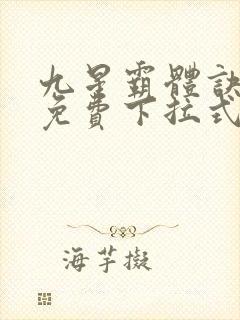 九星霸體訣
免費下拉式
海芋擬